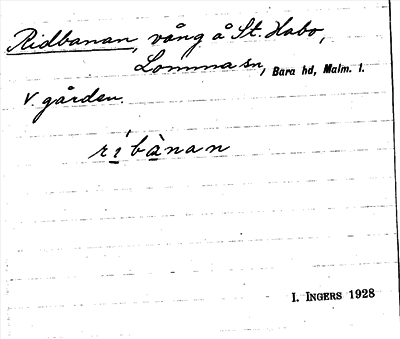 Ridbanan, vång å St. Habo,
Lomma sn, Bara hd, Malm. l.
V gården.
ri´bànan
I. INGERS 1928